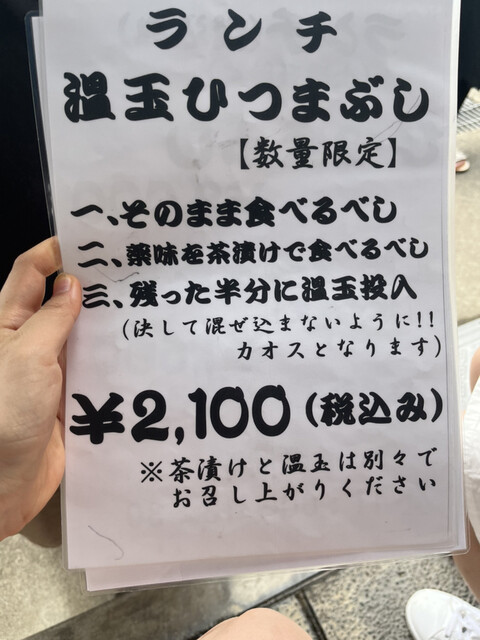 ランチ
温玉ひつまぶし
【数量限定】
一、そのまま食べるべし
二、薬味を茶漬けで食べるべし
三、残った半分に温玉投入
(決して混ぜ込まないように!!
カオスとなります)
¥2,100(税込み)
※茶漬けと温玉は別々で
お召し上がりください